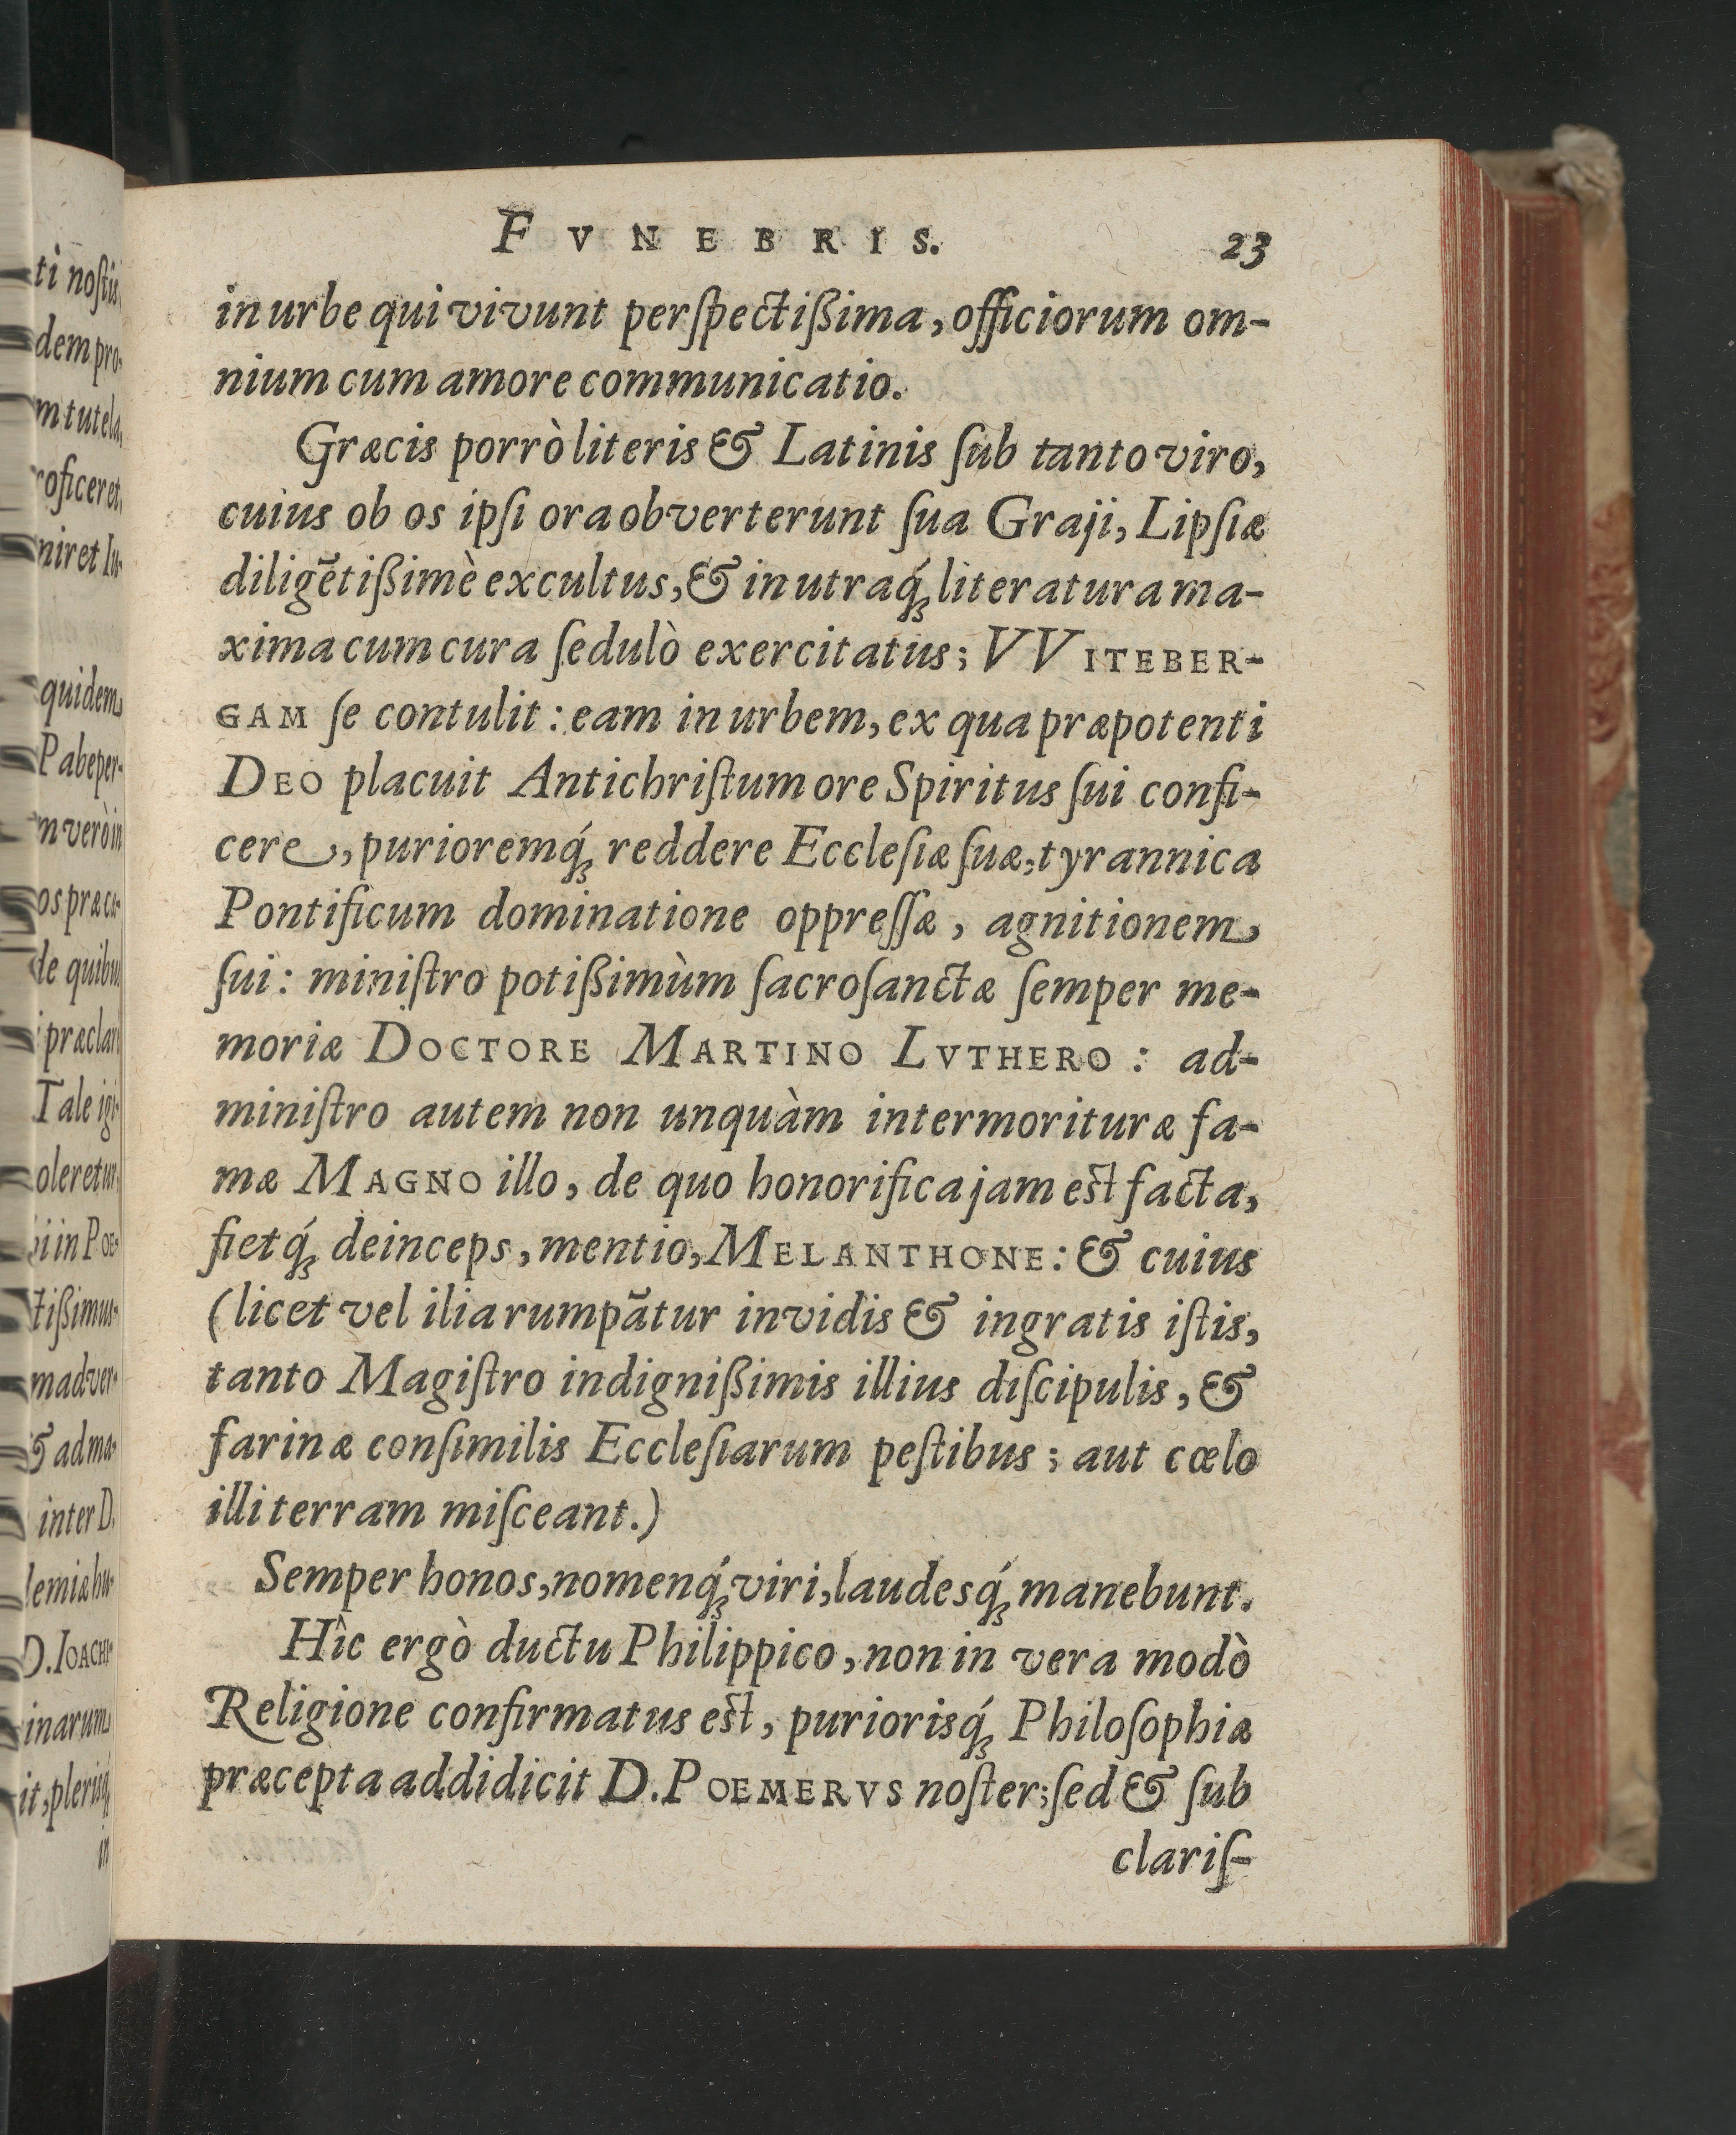 FVNEBRIS. 23
in urbe qui vivunt perſpectißima, officiorum om-
nium cum amore communicatio.
Græcis porrò literis & Latinis ſub tanto viro,
cuius ob os ipſi ora obverterunt ſua Graji, Lipſiæ
diligẽtißimè excultus, & in utraq́; literatura ma-
xima cum cura ſedulò exercitatus; VVITEBER-
GAM ſe contulit: eam in urbem, ex qua præpotenti
DEO placuit Antichriſtum ore Spiritus ſui confi-
cere, purioremq́; reddere Eccleſiæ ſuæ, tyrannica
Pontificum dominatione oppreſſæ, agnitionem
ſui: miniſtro potißimùm ſacroſanctæ ſemper me-
moriæ DOCTORE MARTINO LVTHERO: ad-
miniſtro autem non unquàm intermorituræ fa-
mæ MAGNO illo, de quo honorifica jam eſt facta,
fietq́; deinceps, mentio, MELANTHONE: & cuius
(licet vel ilia rumpãtur invidis & ingratis iſtis,
tanto Magiſtro indignißimis illius diſcipulis, &
farinæ conſimilis Eccleſiarum peſtibus; aut cœlo
illi terram miſceant.)
Semper honos, nomenq́; viri, laudesq́; manebunt.
Hîc ergò ductu Philippico, non in vera modò
Religione confirmatus eſt, puriorisq́; Philoſophiæ
præcepta addidicit D. POEMERVS noſter; ſed & ſub
clariſ-